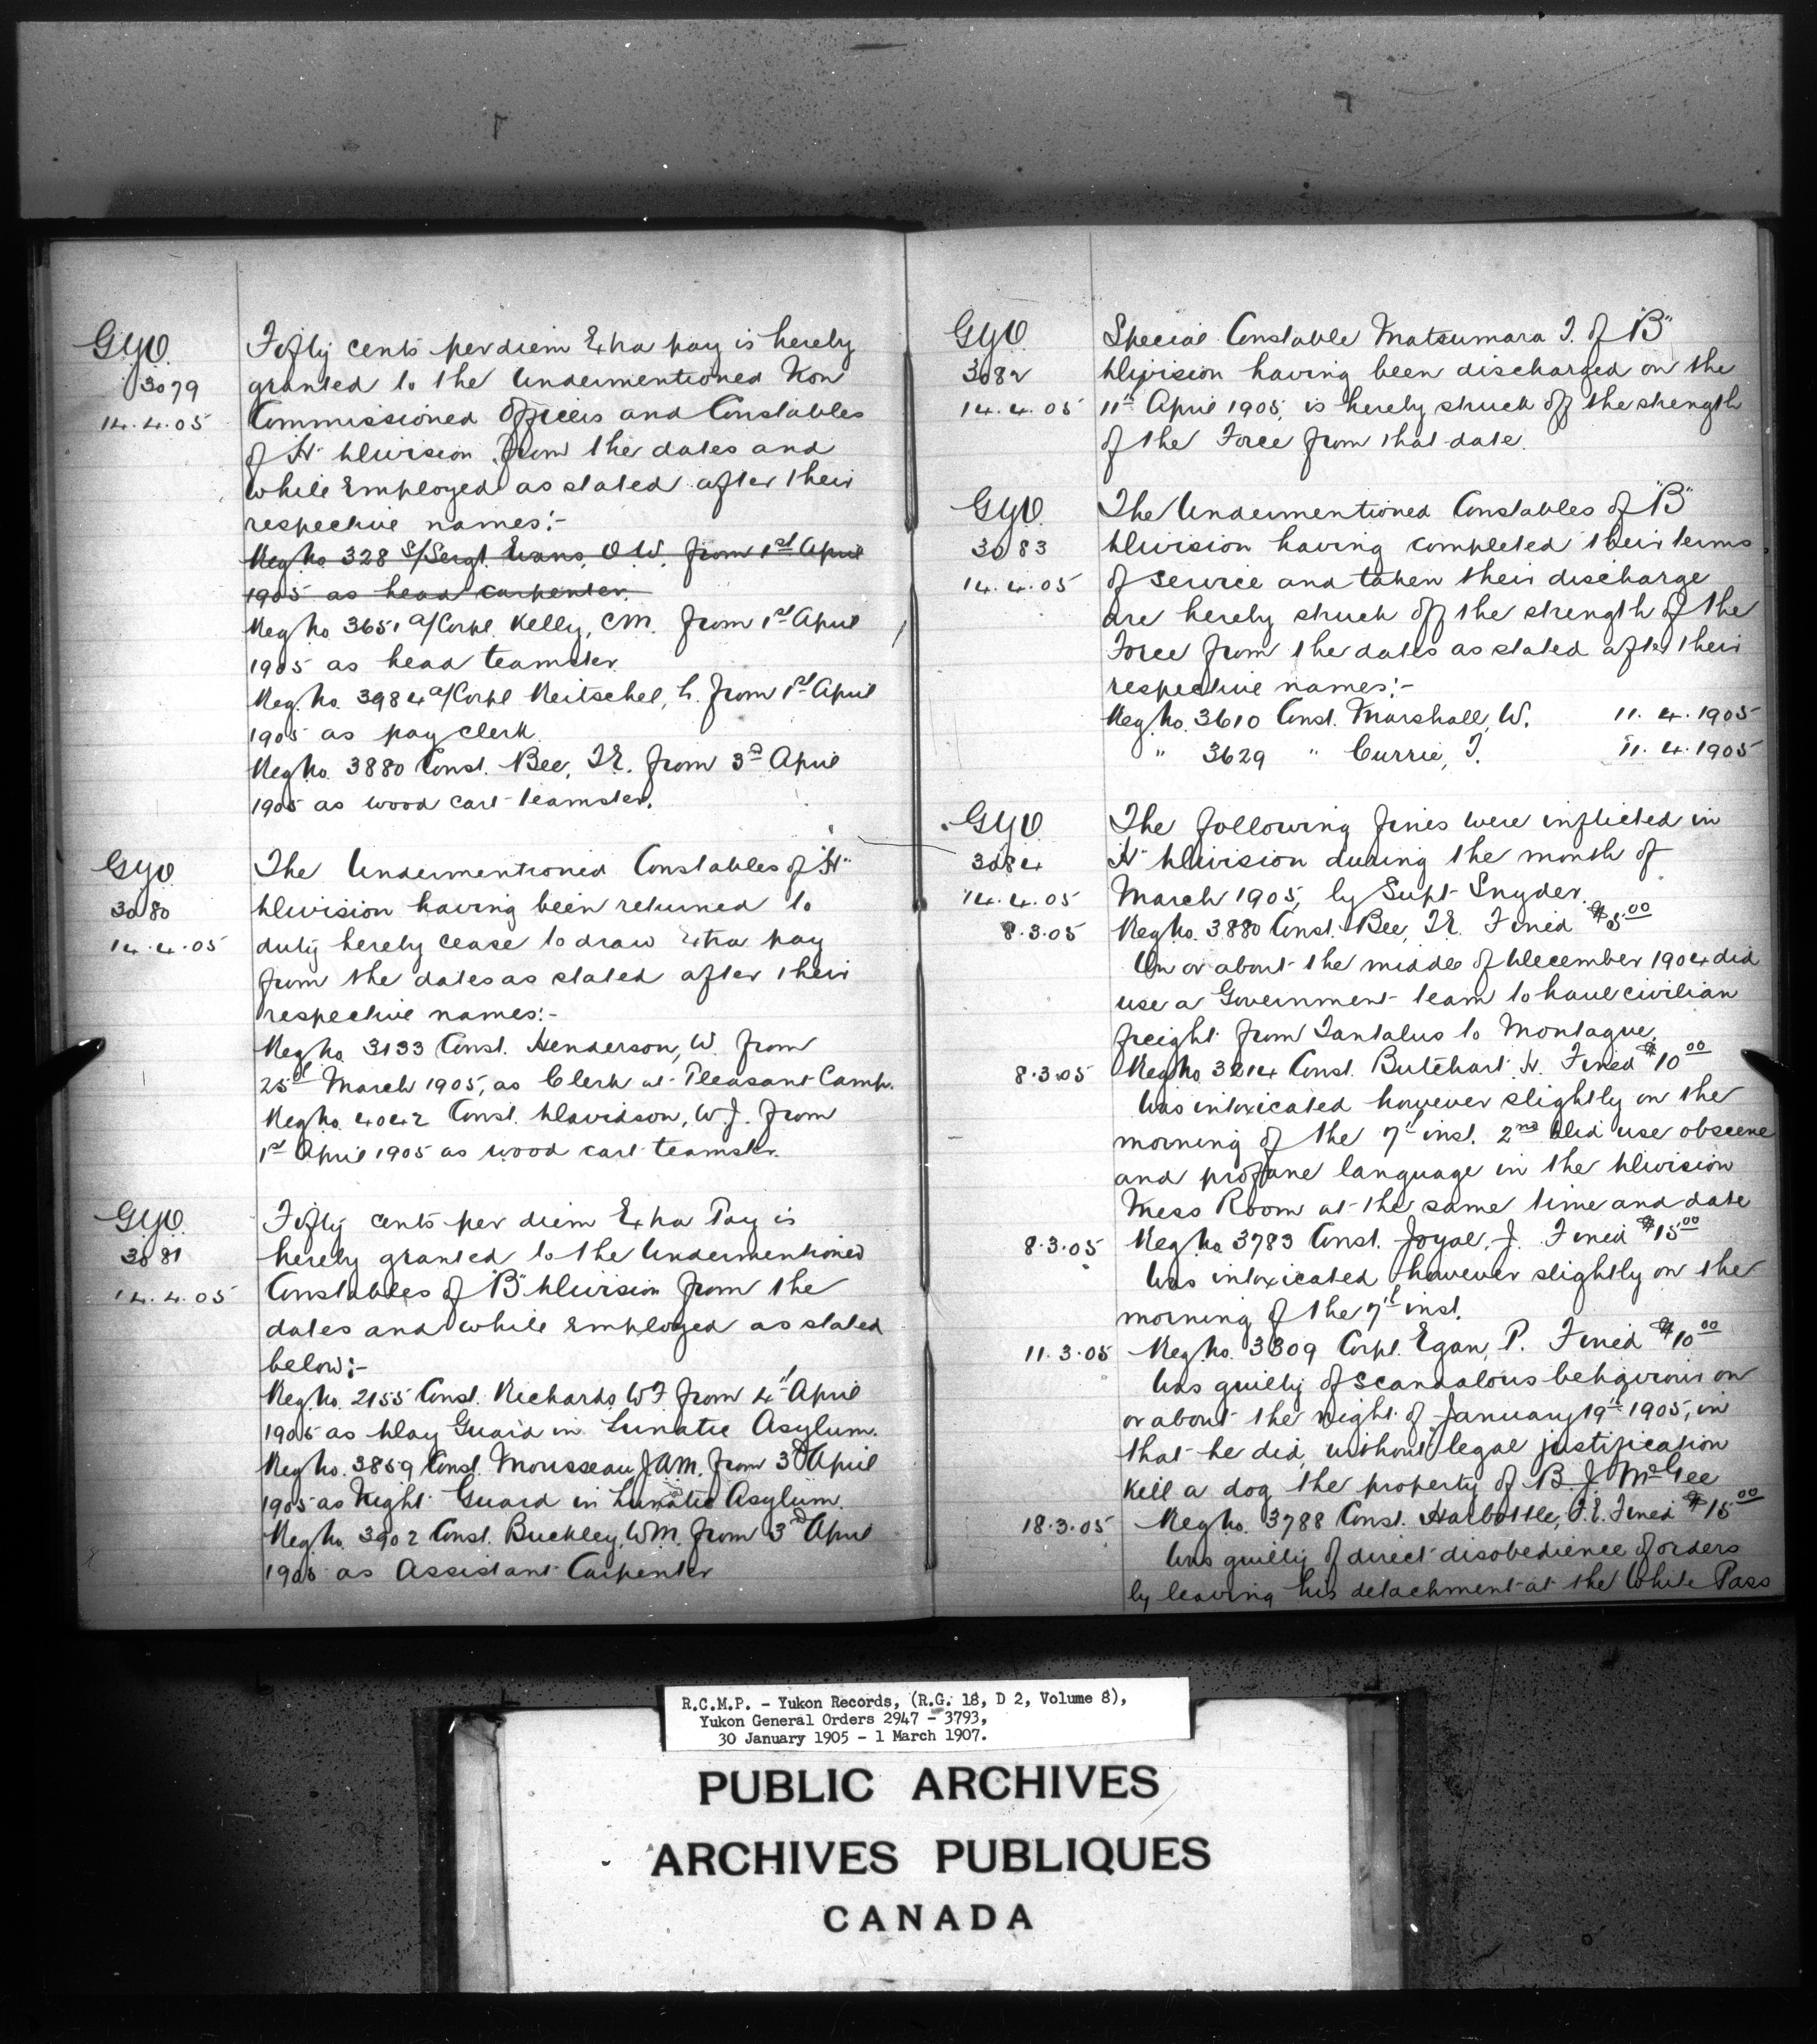 GYO.
3079
14.4.05
Fifty cents per diem Extra pay is hereby
granted to the Undermentioned Non
Commissioned Officers and Constables
of "H" Division from the dates and
while Employed as stated after their
respective names:-
Reg No 328 S/Sergt. Evans, O.W. from 1st April
1905 as head carpenter.
Reg No 3651 a/Corpl. Kelly, C.M. from 1st April
1905 as head teamster.
Reg. No. 3984 a/Corpl Reitschel, from 1st April
1905 as pay clerk.
Reg No. 3880 Const. Bee, T.E. from 3rd April
1905 as wood cart teamster.
GYO
3080
14.4.05
The Undermentioned Constables of "H"
Division having been returned to
duty hereby cease to draw Extra pay
from the dates as stated after their
respective names:-
Reg No. 3133 Const. Henderson, W. from
25th March 1905, as Clerk at Pleasant Camp.
Reg No. 4042 Const. Davidson, W.J. from
1st April 1905 as wood cart teamster.
GYO.
3081
14.4.05
Fifty cents per diem Extra Pay is
hereby granted to the Undermentioned
Constables of "B" Division from the
dates and while Employed as stated
below:-
Reg. No. 2155 Const. Richards, W.F. from 4th April
1905 as Day Guard in Lunatic Asylum.
Reg No. 3859 Const. Mousseau, J.A.M. from 3rd April
1905 as Night Guard in Lunatic Asylum.
Reg No. 3902 Const. Buckley, W.M. from 3rd April
1905 as Assistant Carpenter
GYO
3082
14.4.05
Special Constable Matsumara T. of "B"
Division having been discharged on the
11th April 1905, is hereby struck off the strength
of the Force from that date.
GYO.
3083
14.4.05
The Undermentioned Constables of "B"
Division having completed their terms
of service and taken their discharge
are hereby struck off the strength of the
Force from the dates as stated after their
respective names:-
Reg No. 3610 Const. Marshall, W. 11.4.1905
" 3629 " Currie, T. 11.4.1905
GYO
3084
14.4.05
The following fines were inflicted in
"H" Division during the month of
March 1905, by Supt Snyder.
8.3.05 Reg No. 3880 Const. Bee, T.E. Fined $5.00
On or about the middle of December 1904 did
use a Government team to haul civilian
freight from Tantalus to Montague.
8.3.05 Reg No 3214 Const. Butchart H. Fined $10.00
Was intoxicated however slightly on the
morning of the 7th inst. 2nd Did use obscene
and profane language in the Division
Mess Room at the same time and date
8.3.05 Reg No 3783 Const. Joyal, J. Fined $15.00
Was intoxicated however slightly on the
morning of the 7th inst.
11.3.05 Reg No. 3309 Corpl. Egan, P. Fined $10.00
Was guilty of scandalous behaviour on
or about the night of January 19th 1905, in
that he did, without legal justification
kill a dog the property of B. J. McGee
18.3.05 Reg No. 3788 Const. Harbottle, F.E. Fined $15.00
Was guilty of direct disobedience of orders
by leaving his detachment at the White Pass
R.C.M.P. - Yukon Records, (R.G. 18, D 2, Volume 8),
Yukon General Orders 2947 - 3793,
30 January 1905 - 1 March 1907.
PUBLIC ARCHIVES
ARCHIVES PUBLIQUES
CANADA